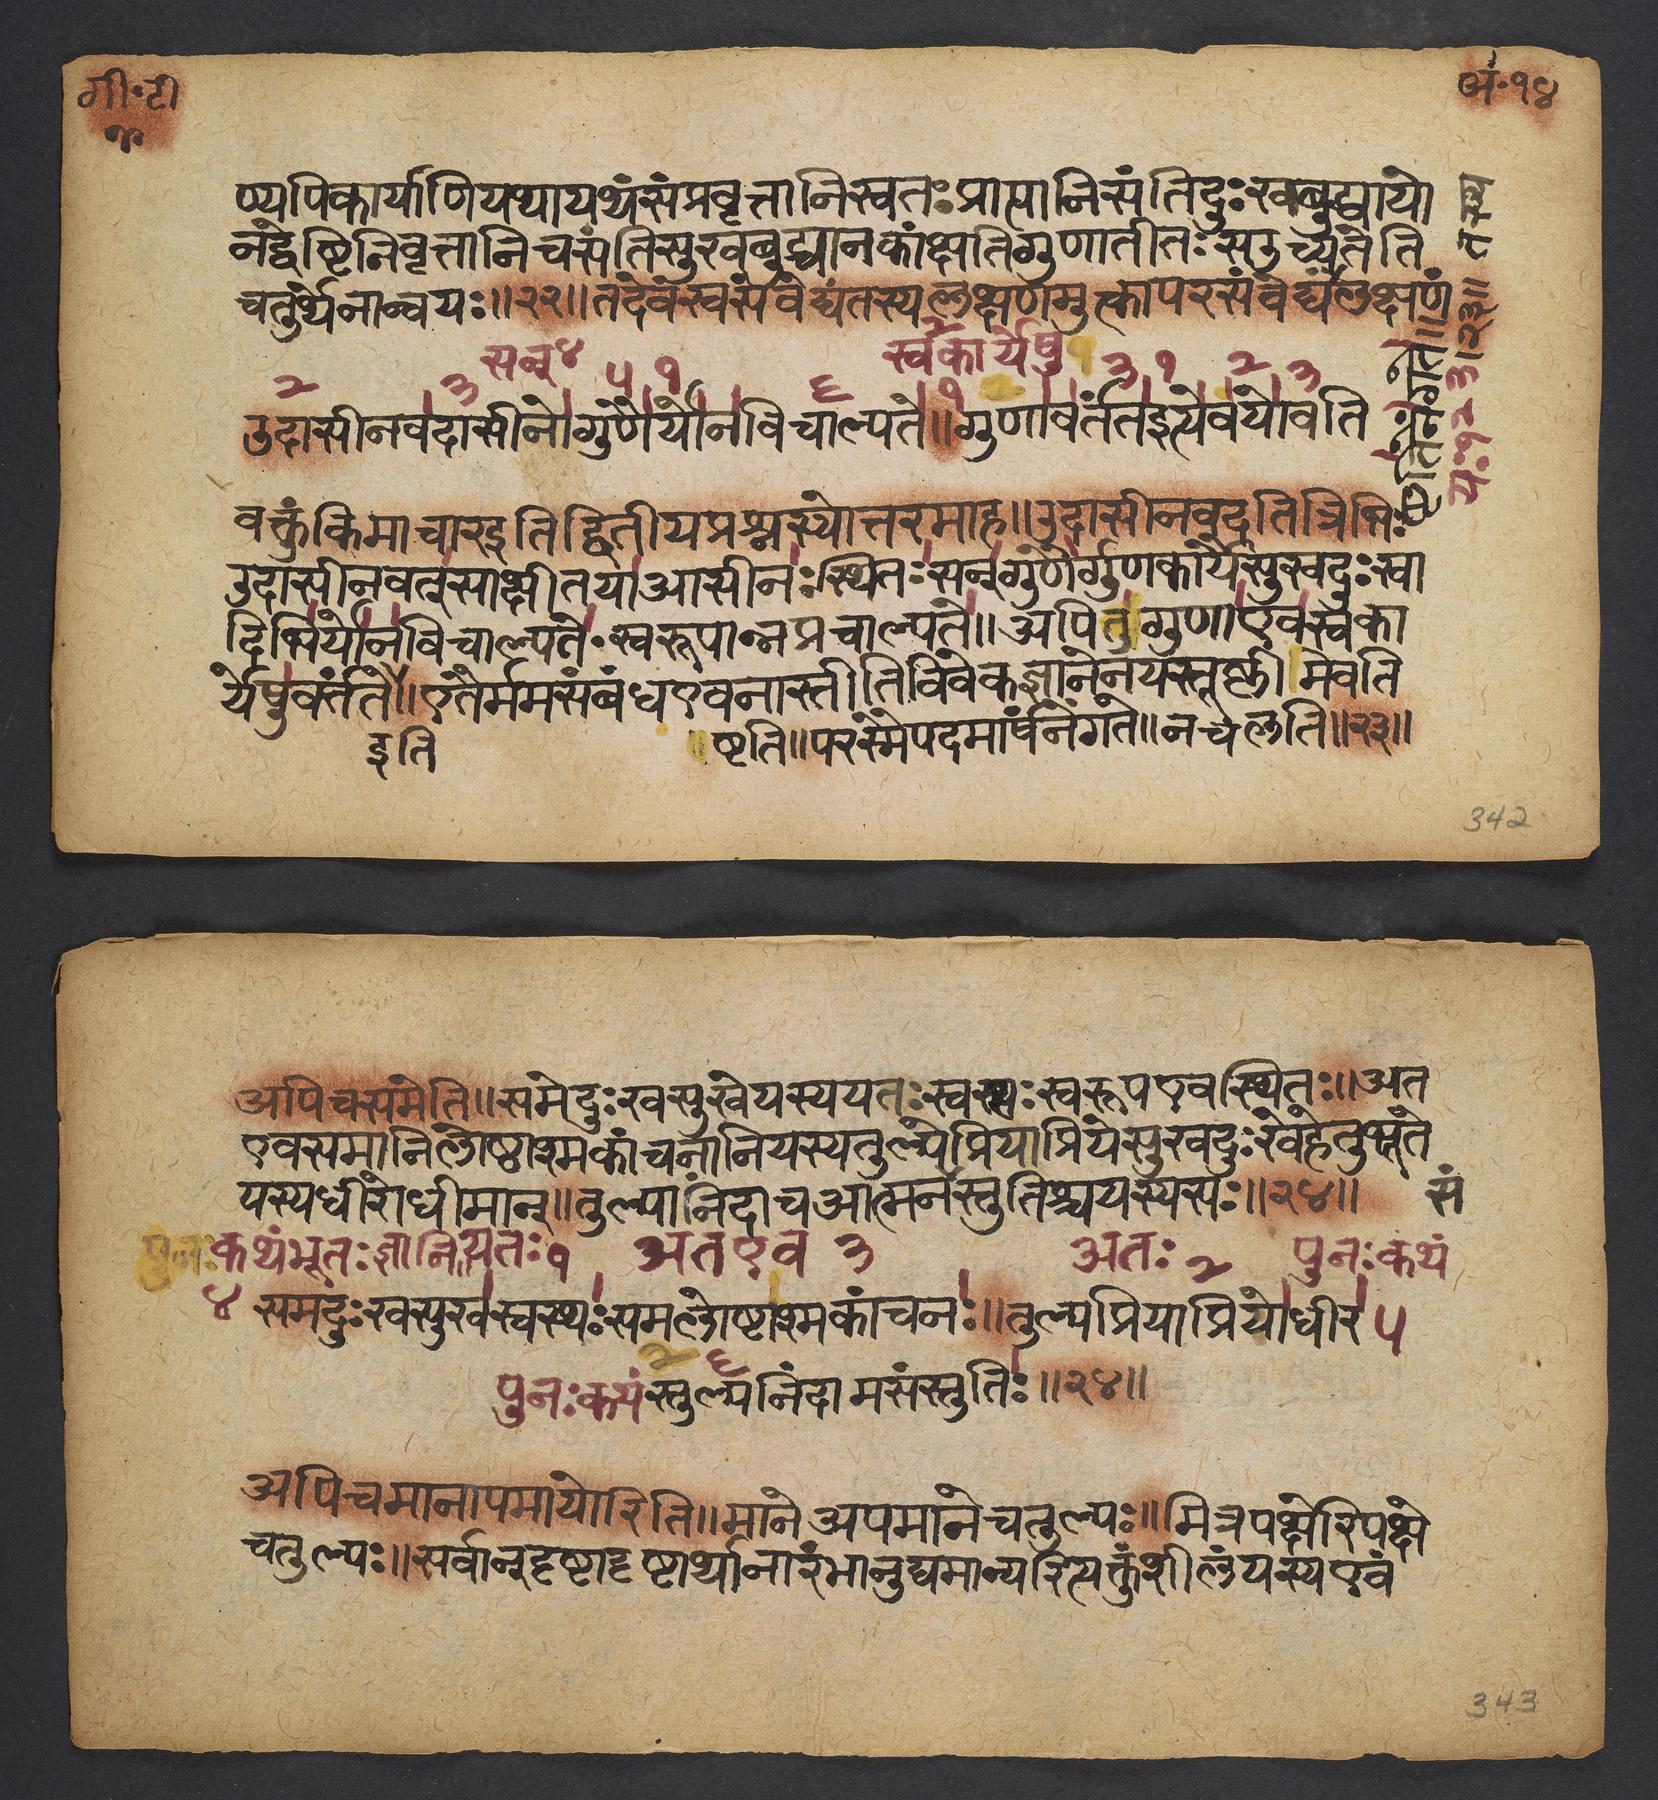 गी॰टी
अं॰१४
ण्यपिकार्याणियथायथंसंप्रवृत्तानिस्वतःप्राप्तानिसंतिदुःखबुद्ध्यायो
नद्वेष्टिनिवृत्तानिचसंतिसुखबुद्ध्यानकांक्षतिगुणातीतःसउच्यतेति
चतुर्थेनान्वयः॥२२॥तदेवंस्वसंवेद्यंतस्यलक्षणमुत्क्वापरसंवेद्यंलक्षणं
सन्४ स्वकार्येषु१
२ ३ ५ १ ६ १ २ ३ १ २ ३
उदासीनवदासीनोगुणैर्योनविचाल्पते॥गुणावर्ततइत्येवंयोवति
वक्तुंकिमाचारइतिद्वितीयप्रश्नस्योत्तरमाह॥उदासीनवदतित्रिभिः
उदासीनवत्साक्षीतयाआसीनःस्थितःसन्गुणैर्गुणकार्यैसुखदुःखा
दिभिर्योनविचाल्पते॰स्वरूपान्नप्रचाल्पते॥अपितुगुणाएवस्वका
र्येषुवर्तते॥एतैर्ममसंबंधएवनास्तीतिविवेकज्ञानेनयस्तूष्णीमवति
इति ॥ष्टति॥परस्मैपदमार्षनंगंते॥नचलति॥२३॥
342
अपिचसमेति॥समेदुःखसुखेयस्ययतःस्वस्थःस्वरूपएवस्थितः॥अत
एवसमानिलोष्ठाश्मकांचनानियस्यतुल्येप्रियाप्रियेसुखदुःखेहेतुभूते
यस्यधीरोधीमान्॥तुल्पानिंदाचआत्मनस्तुतिश्चयस्यसः॥२४॥ सं
पुनःकथंभूतःज्ञानियतः१ अतएव ३ अतः २ पुनःकथं
४ समदुःखसुखस्वस्थःसमलोष्टाश्मकांचनः॥तुल्पप्रियाप्रियोधीर ५
२ ६
पुनःकथंस्तुल्पनिंदामसंस्तुतिः॥२४॥
अपिचमानापमायोरिति॥मानेअपमानेचतुल्पः॥मित्रपक्षेरिपक्षे
चतुल्पः॥सर्वान्दृष्टादृष्टार्थानारंभानुद्यमान्परित्यक्तुंशीलंयस्यएवं
343